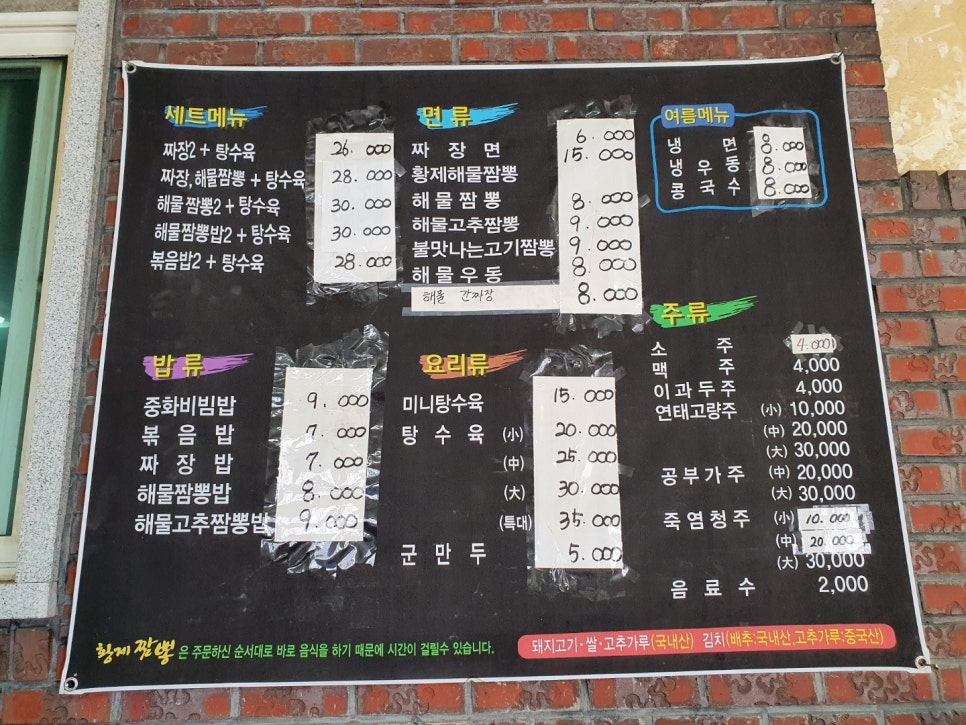 세트메뉴
짜장2 + 탕수육 26.000
짜장,해물짬뽕 + 탕수육 28.000
해물짬뽕2 + 탕수육 30.000
해물짬뽕밥2 + 탕수육 30.000
볶음밥2 + 탕수육 28.000
면류
짜장면 6.000
황제해물짬뽕 15.000
해물짬뽕 8.000
해물고추짬뽕 9.000
불맛나는고기짬뽕 9.000
해물우동 8.000
해물 간짜장 8.000
여름메뉴
냉면 8.000
냉우동 8.000
콩국수 8.000
밥류
중화비빔밥 9.000
볶음밥 7.000
짜장밥 7.000
해물짬뽕밥 8.000
해물고추짬뽕밥 9.000
요리류
미니탕수육 15.000
탕수육 (小) 20.000
(中) 25.000
(大) 30.000
(특대) 35.000
군만두 5.000
주류
소주 4.000
맥주 4,000
이과두주 4,000
연태고량주 (小) 10,000
(中) 20,000
(大) 30,000
공부가주 (中) 20,000
(大) 30,000
죽염청주 (小) 10.000
(中) 20.000
(大) 30,000
음료수 2,000
황제짬뽕은 주문하신 순서대로 바로 음식을 하기 때문에 시간이 걸릴수 있습니다.
돼지고기·쌀·고추가루(국내산) 김치(배추:국내산,고추가루:중국산)